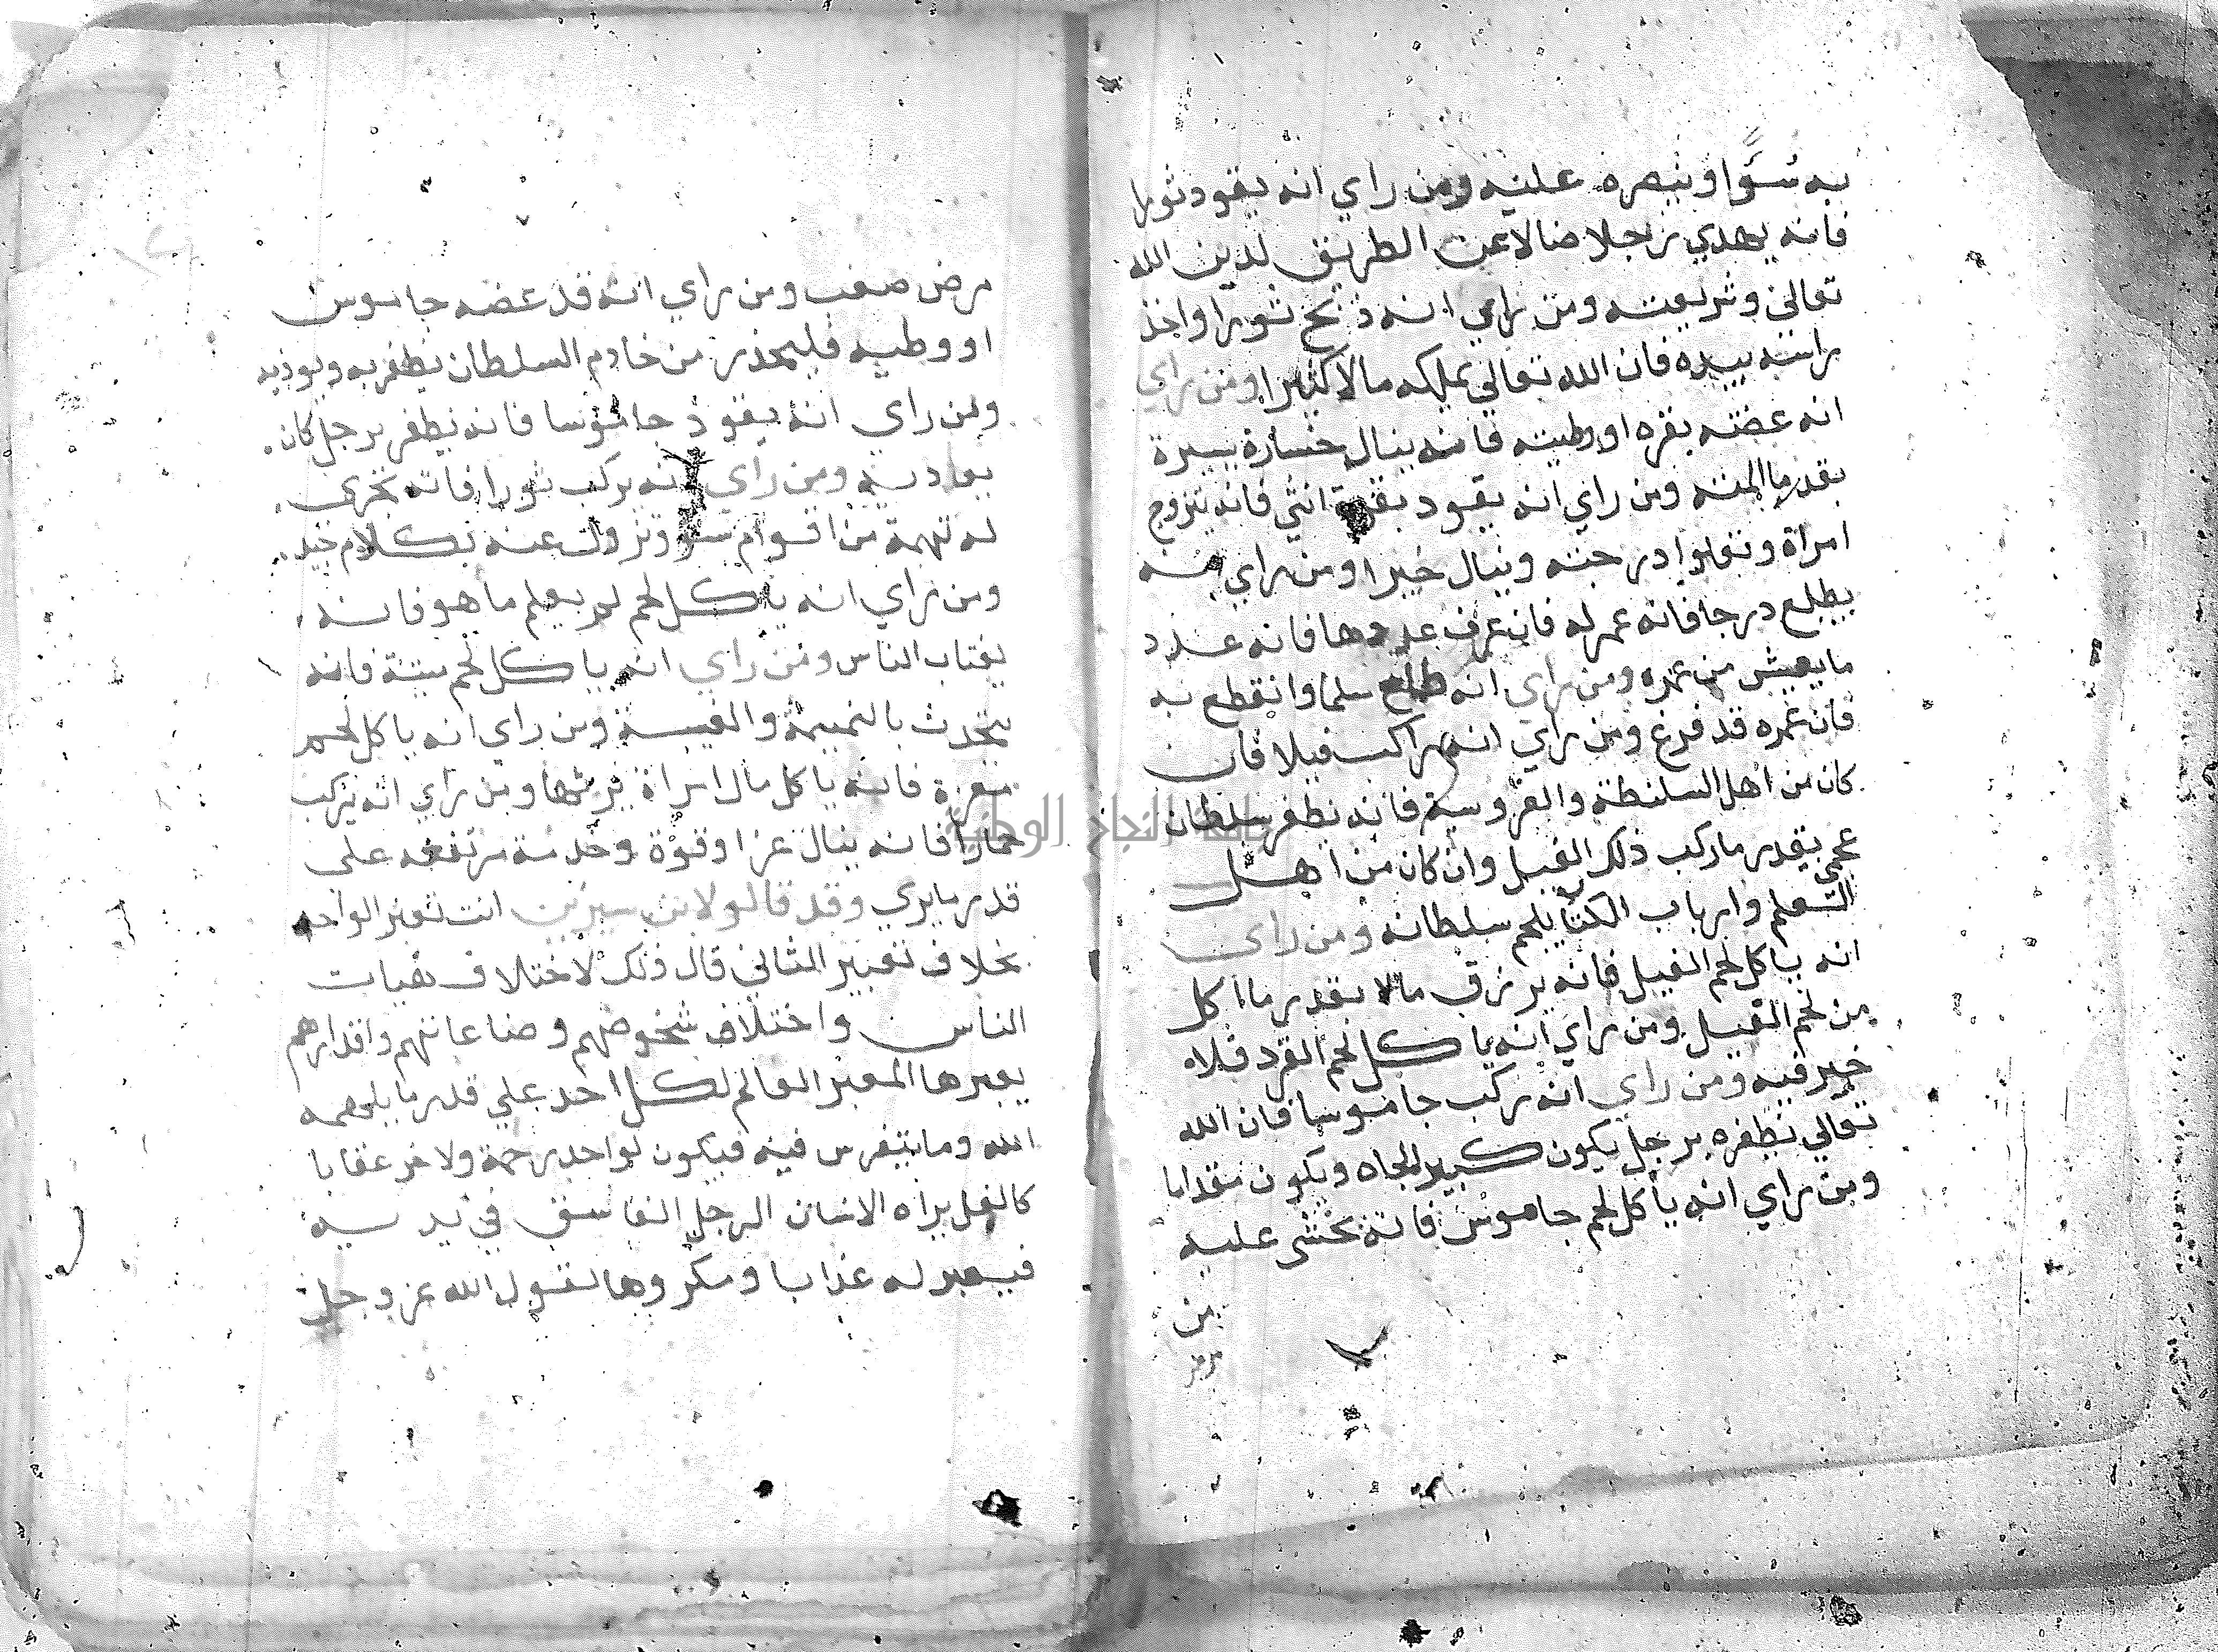 به سُوًا وينصره عليه ومن راي انه يقود ثورا
فانه يهدي رجلا ضالا عن الطريق لدين الله
تعالي وشريعته ومن راي انه ذبح ثورا واخذ
راسه بيده فان الله تعالي يملكه مالا كثيرا ومن راي
انه عضته بقره او وطيته فانه ينال خسارة يسيرة
بقدر ما المته ومن راي انه يقود بقرة انثي فانه يتزوج
امراة وتعلوا درجته وينال خيرا ومن راي انه
يطلع درجا فانه عمر له فان عرف عددها فانه عدد
ما يعيش من عمره ومن راي انه طلع سلما وانقطع به
فان عمره قد فرغ ومن راي انه راكب فيلا فان
كان من اهل السلطنة والفروسية فانه يظفر بسلطان
عجمي بقدر ما ركب ذلك الفيل وان كان من اهل
التعلم وارباب الكتاب يلحم سلطانه ومن راي
انه ياكل لحم الفيل فانه يرزق مالا بقدر ما اكل
من لحم الفيل ومن راي انه ياكل لحم القرد فلاه
خير فيه ومن راي انه ركب جاموسا فان الله
تعالي يظفره برجل يكون كبير الجاه ويكون مقداما
ومن راي انه ياكل لحم جاموس فانه يخشي عليه
من
مرض صعب ومن راي انه قد عضه جاموس
او وطيه فليحذر من خادم السلطان يظفر به ويوذيه
ومن راي انه يقود جاموسا فانه يظفر برجل كان
يعاديه ومن راي انه يركب ثورا فانه تجري
له تهمة من اقوام سو وتزول عنه بكلام جيد
ومن راي انه ياكل لحم لم يعلم ما هو فانه
يغتاب الناس ومن راي انه ياكل لحم ميتة فانه
يتحدث بالنميمة والغيبة ومن راي انه ياكل لحم
معزة فانه ياكل مال امراة يرثها ومن راي انه يركب
حمارا فانه ينال عزا وقوة وخدمة مرتفعه علي
قدر ما يري وقد قالو لابن سيرين انت تعبر الواحد
بخلاف تعبير الثاني قال ذلك لاختلاف هيات
الناس واختلاف شخوصهم وصناعاتهم واقدارهم
يعبرها المعبر العالم لكل احد علي قدر ما يلهمه
الله وما يتفرس فيه فيكون لواحد رحمة ولاخر عقابا
كالغل يراه الانسان الرجل الفاسق في يديه
فيعبر له عذابا ومكروها لقول الله عز وجل
جامعة النجاح الوطنية